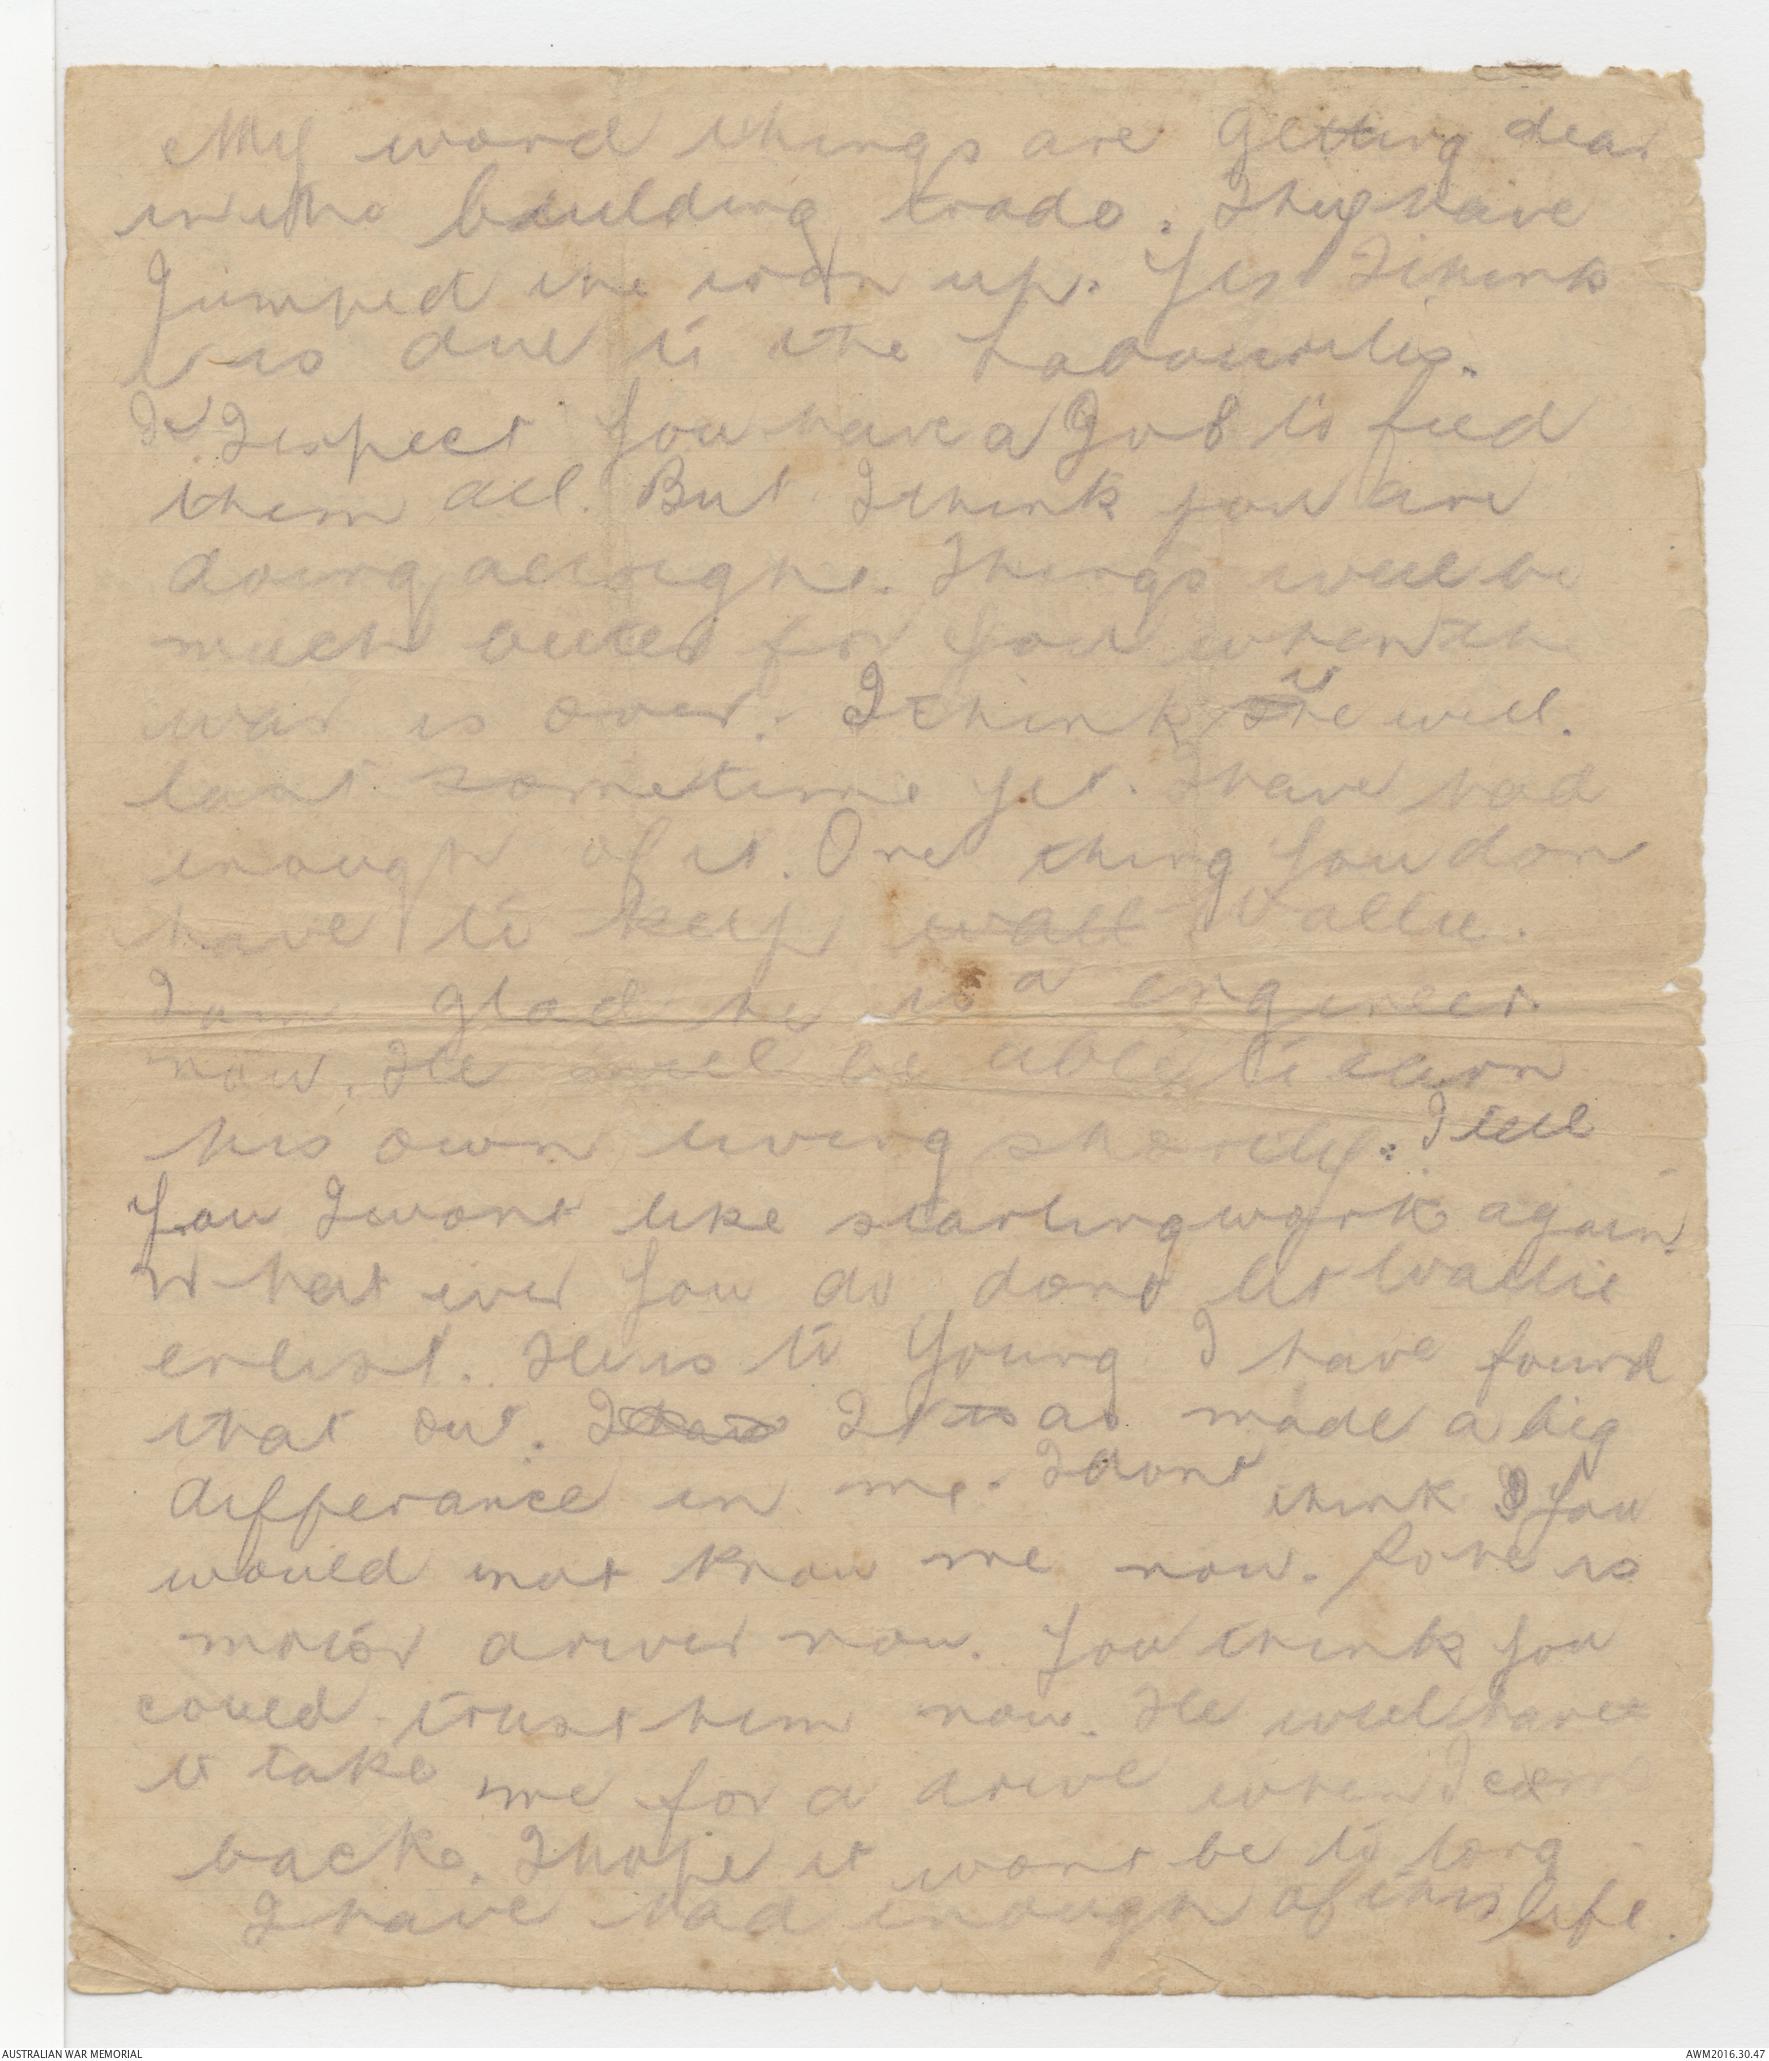 My word things are getting dear
in the baulding trade. They have
Jumped the iron up. Yes I think
is due to the labourties.
I expect you have a Job to feed
them all. But I think you are
doing allright. Things will be
much better for you when the
war is over. I think it will.
last sometime yet. I have had
enough of it. One thing you don
have to keep wall Wallie.
I am glad he is a engineer.
now. He will be able to earn
his own living shortly. I tell
you I wont like starting work again.
What ever you do dont let Wallie
enlist. He is to young I have found
that out. I have It is as made a big
differance in me. I dont think I you
would not know me now. is
motor driver now. You think you
could trust him now. He will have
to take me for a drive when I com
back. I hope it wont be to long
I have had enough of this life.
AUSTRALIAN WAR MEMORIAL
AWM2016.30.47